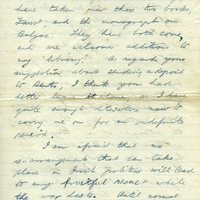 have taken over those two books,
Faust and the monograph on
Balzac. They have both come,
and are welcome addition to
my library. As regards your
suggestion about sending a deposit
to , I thank you but had
better leave it alone, as I have
quite enough literature now to
carry me on for an indefinite
period.
I am afraid that no
re-arrangements that can take
place in Irish politics will lead
to any fruitful result while
the war lasts. Until normal